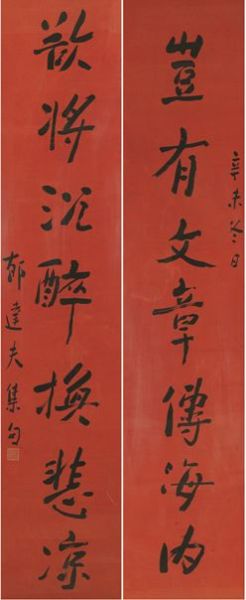 辛未冬日
豈有文章傳海内
欲将沉醉換悲凉
郁達夫集句